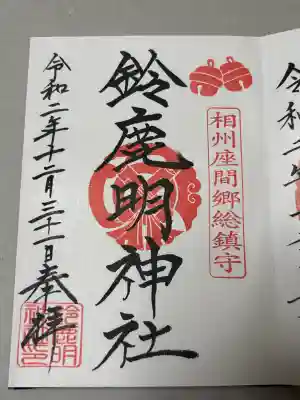 相州座間郷総鎮守
鈴鹿明神社
令和二年十二月三十一日奉拝
鈴鹿明
神社印